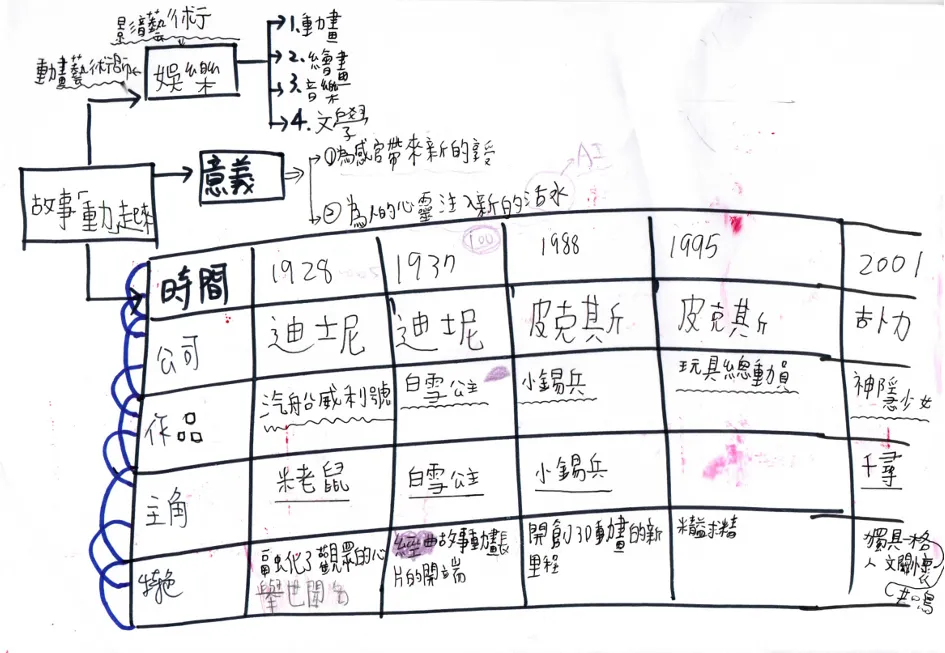 影音藝術
動畫藝術師
娛樂
1.動畫
2.繪畫
3.音樂
4.文學
故事「動」起來
意義
①為感官帶來新的享受
②為人的心靈注入新的活水
AI
100
時間 1928 1937 1988 1995 2001
公司 迪士尼 迪士尼 皮克斯 皮克斯 吉卜力
作品 汽船威利號 白雪公主 小錫兵 玩具總動員 神隱少女
主角 米老鼠 白雪公主 小錫兵 千尋
特色 融化了觀眾的心 經典故事動畫長 開創3D動畫的新 精益求精 獨具一格
舉世聞名 片的開端 里程 人文關懷
共鳴